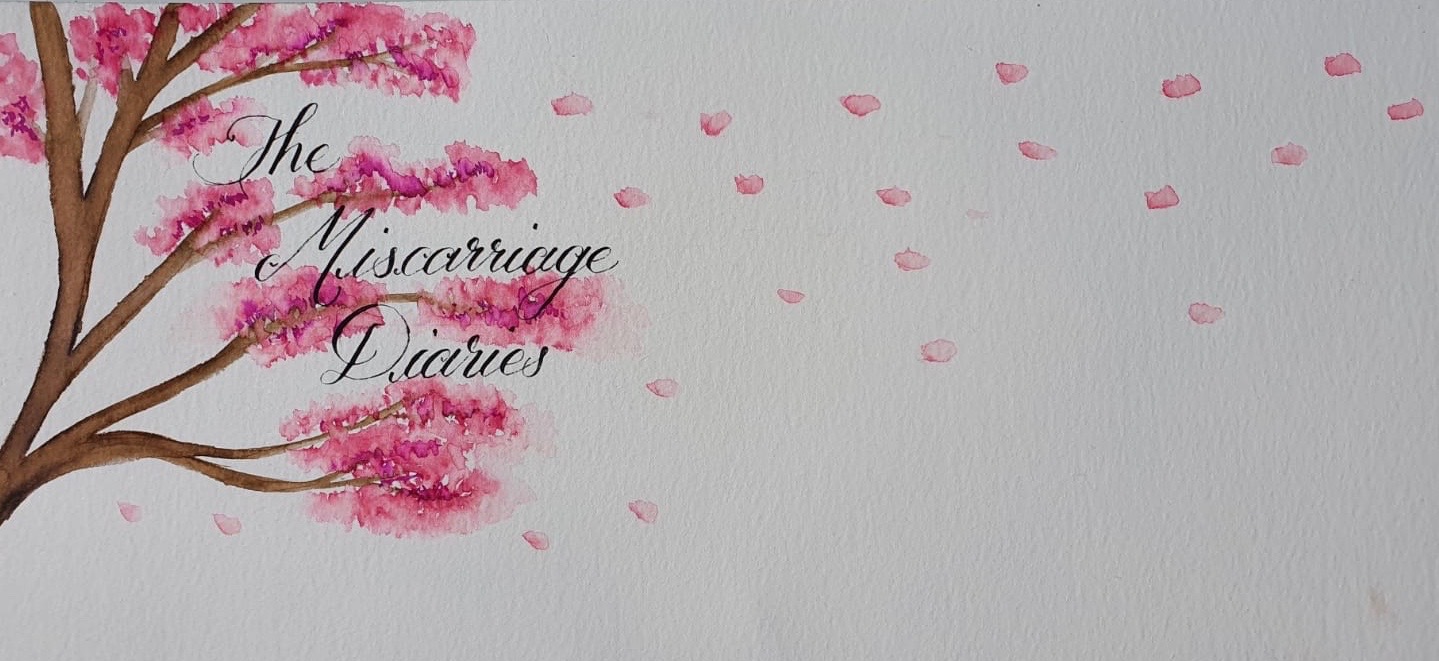 The
Miscarriage
Diaries